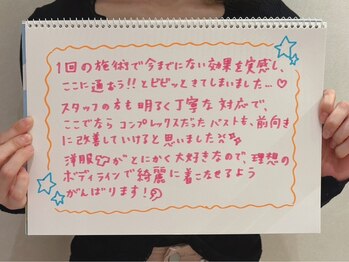 1回の施術で今までにない効果を実感し、
ここに通おう!!とビビッときてしまいました…♡
スタッフの方も明るく丁寧な対応で、
ここでなら コンプレックスだったバストも、前向き
に改善していけると思いました
洋服がとにかく大好きなので、理想の
ボディラインで綺麗に着こなせるよう
がんばります!